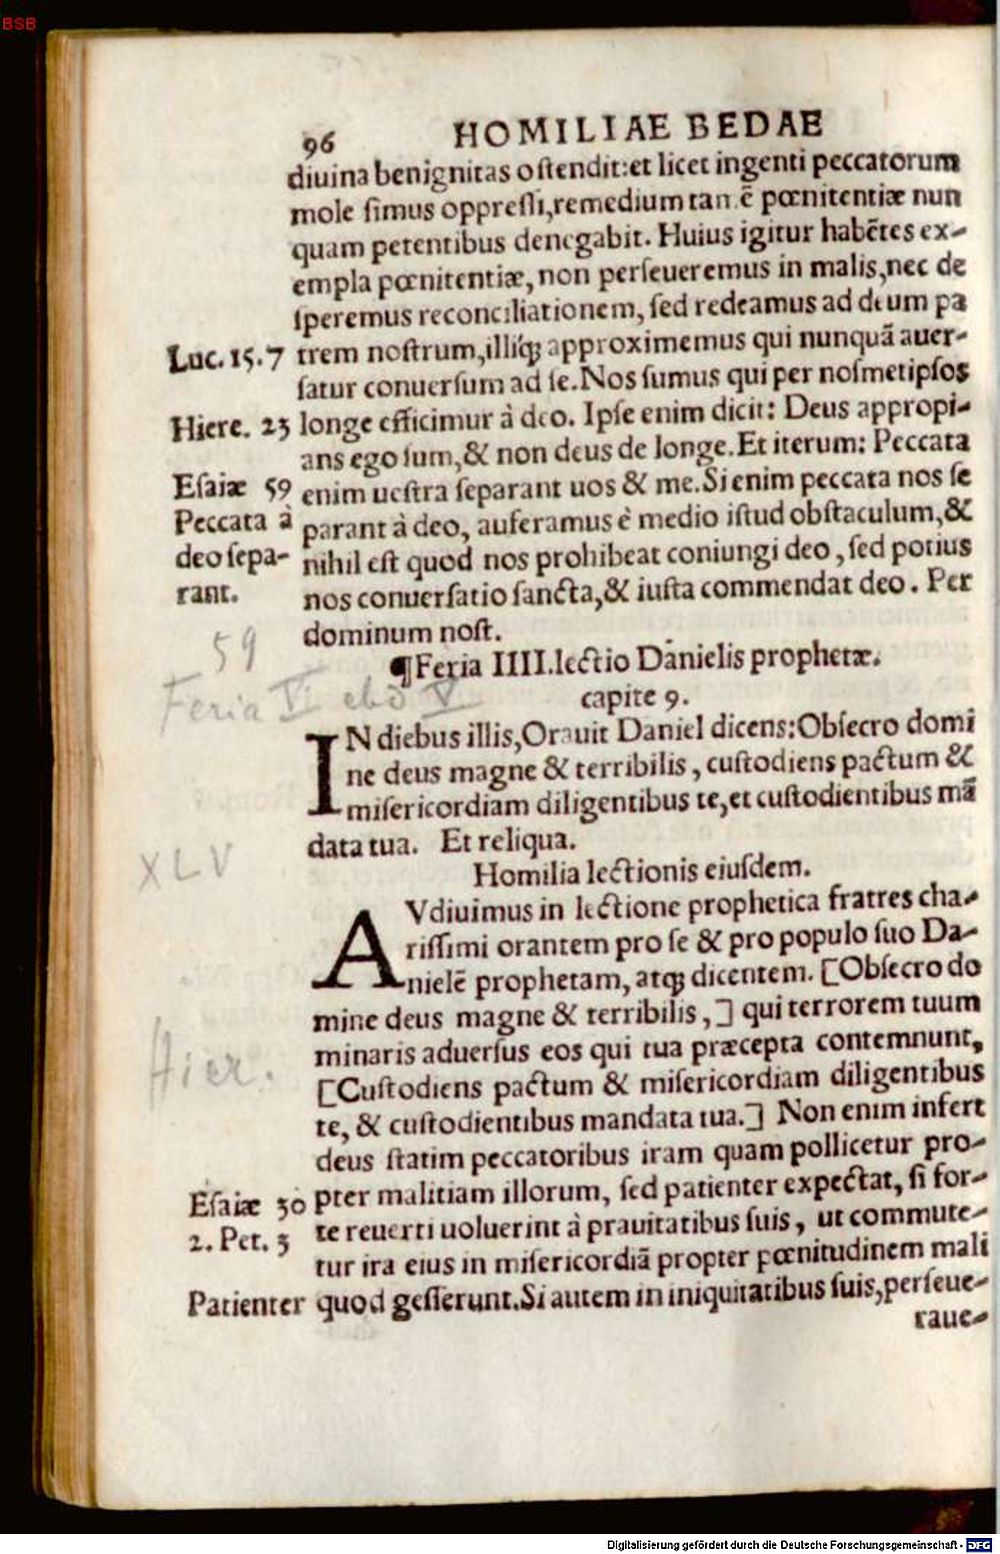 BSB
96 HOMILIAE BEDAE
diuina benignitas ostendit:et licet ingenti peccatorum
mole simus oppressi,remedium tan ẽ pœnitentiæ nun
quam petentibus denegabit. Huius igitur habẽtes ex-
empla pœnitentiæ, non perseueremus in malis,nec de
speremus reconciliationem, sed redeamus ad deum pa
Luc. 15. 7 trem nostrum,illiq; approximemus qui nunquã auer-
satur conuersum ad se.Nos sumus qui per nosmetipsos
Hiere. 23 longe efficimur à deo. Ipse enim dicit: Deus appropi-
ans ego sum,& non deus de longe.Et iterum: Peccata
Esaiæ 59 enim uestra separant uos & me.Si enim peccata nos se
Peccata à parant à deo, auferamus è medio istud obstaculum,&
deo sepa- nihil est quod nos prohibeat coniungi deo, sed potius
rant. nos conuersatio sancta,& iusta commendat deo. Per
dominum nost.
59
¶Feria IIII.lectio Danielis prophetæ.
Feria VI V
capite 9.
IN diebus illis,Orauit Daniel dicens:Obsecro domi
ne deus magne & terribilis, custodiens pactum &
misericordiam diligentibus te,et custodientibus mã
data tua. Et reliqua.
XLV
Homilia lectionis eiusdem.
AVdiuimus in lectione prophetica fratres cha-
rissimi orantem pro se & pro populo suo Da-
nielẽ prophetam, atq; dicentem. [Obsecro do
mine deus magne & terribilis,] qui terrorem tuum
minaris aduersus eos qui tua præcepta contemnunt,
Hier.
[Custodiens pactum & misericordiam diligentibus
te, & custodientibus mandata tua.] Non enim infert
deus statim peccatoribus iram quam pollicetur pro-
Esaiæ 30 pter malitiam illorum, sed patienter expectat, si for-
2. Pet. 3 te reuerti uoluerint à prauitatibus suis, ut commute-
tur ira eius in misericordiã propter pœnitudinem mali
Patienter quod gesserunt.Si autem in iniquitatibus suis,perseue-
raue-
Digitalisierung gefördert durch die Deutsche Forschungsgemeinschaft - DFG